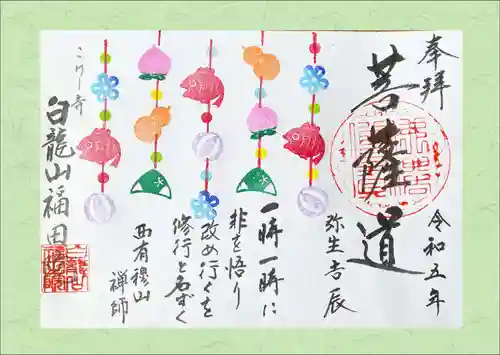 奉拝
菩薩道
令和五年
弥生吉辰
一時一時に
非を悟り
改め行くを
修行と名づく
西有穆山
禅師
こけし寺
白龍山福田